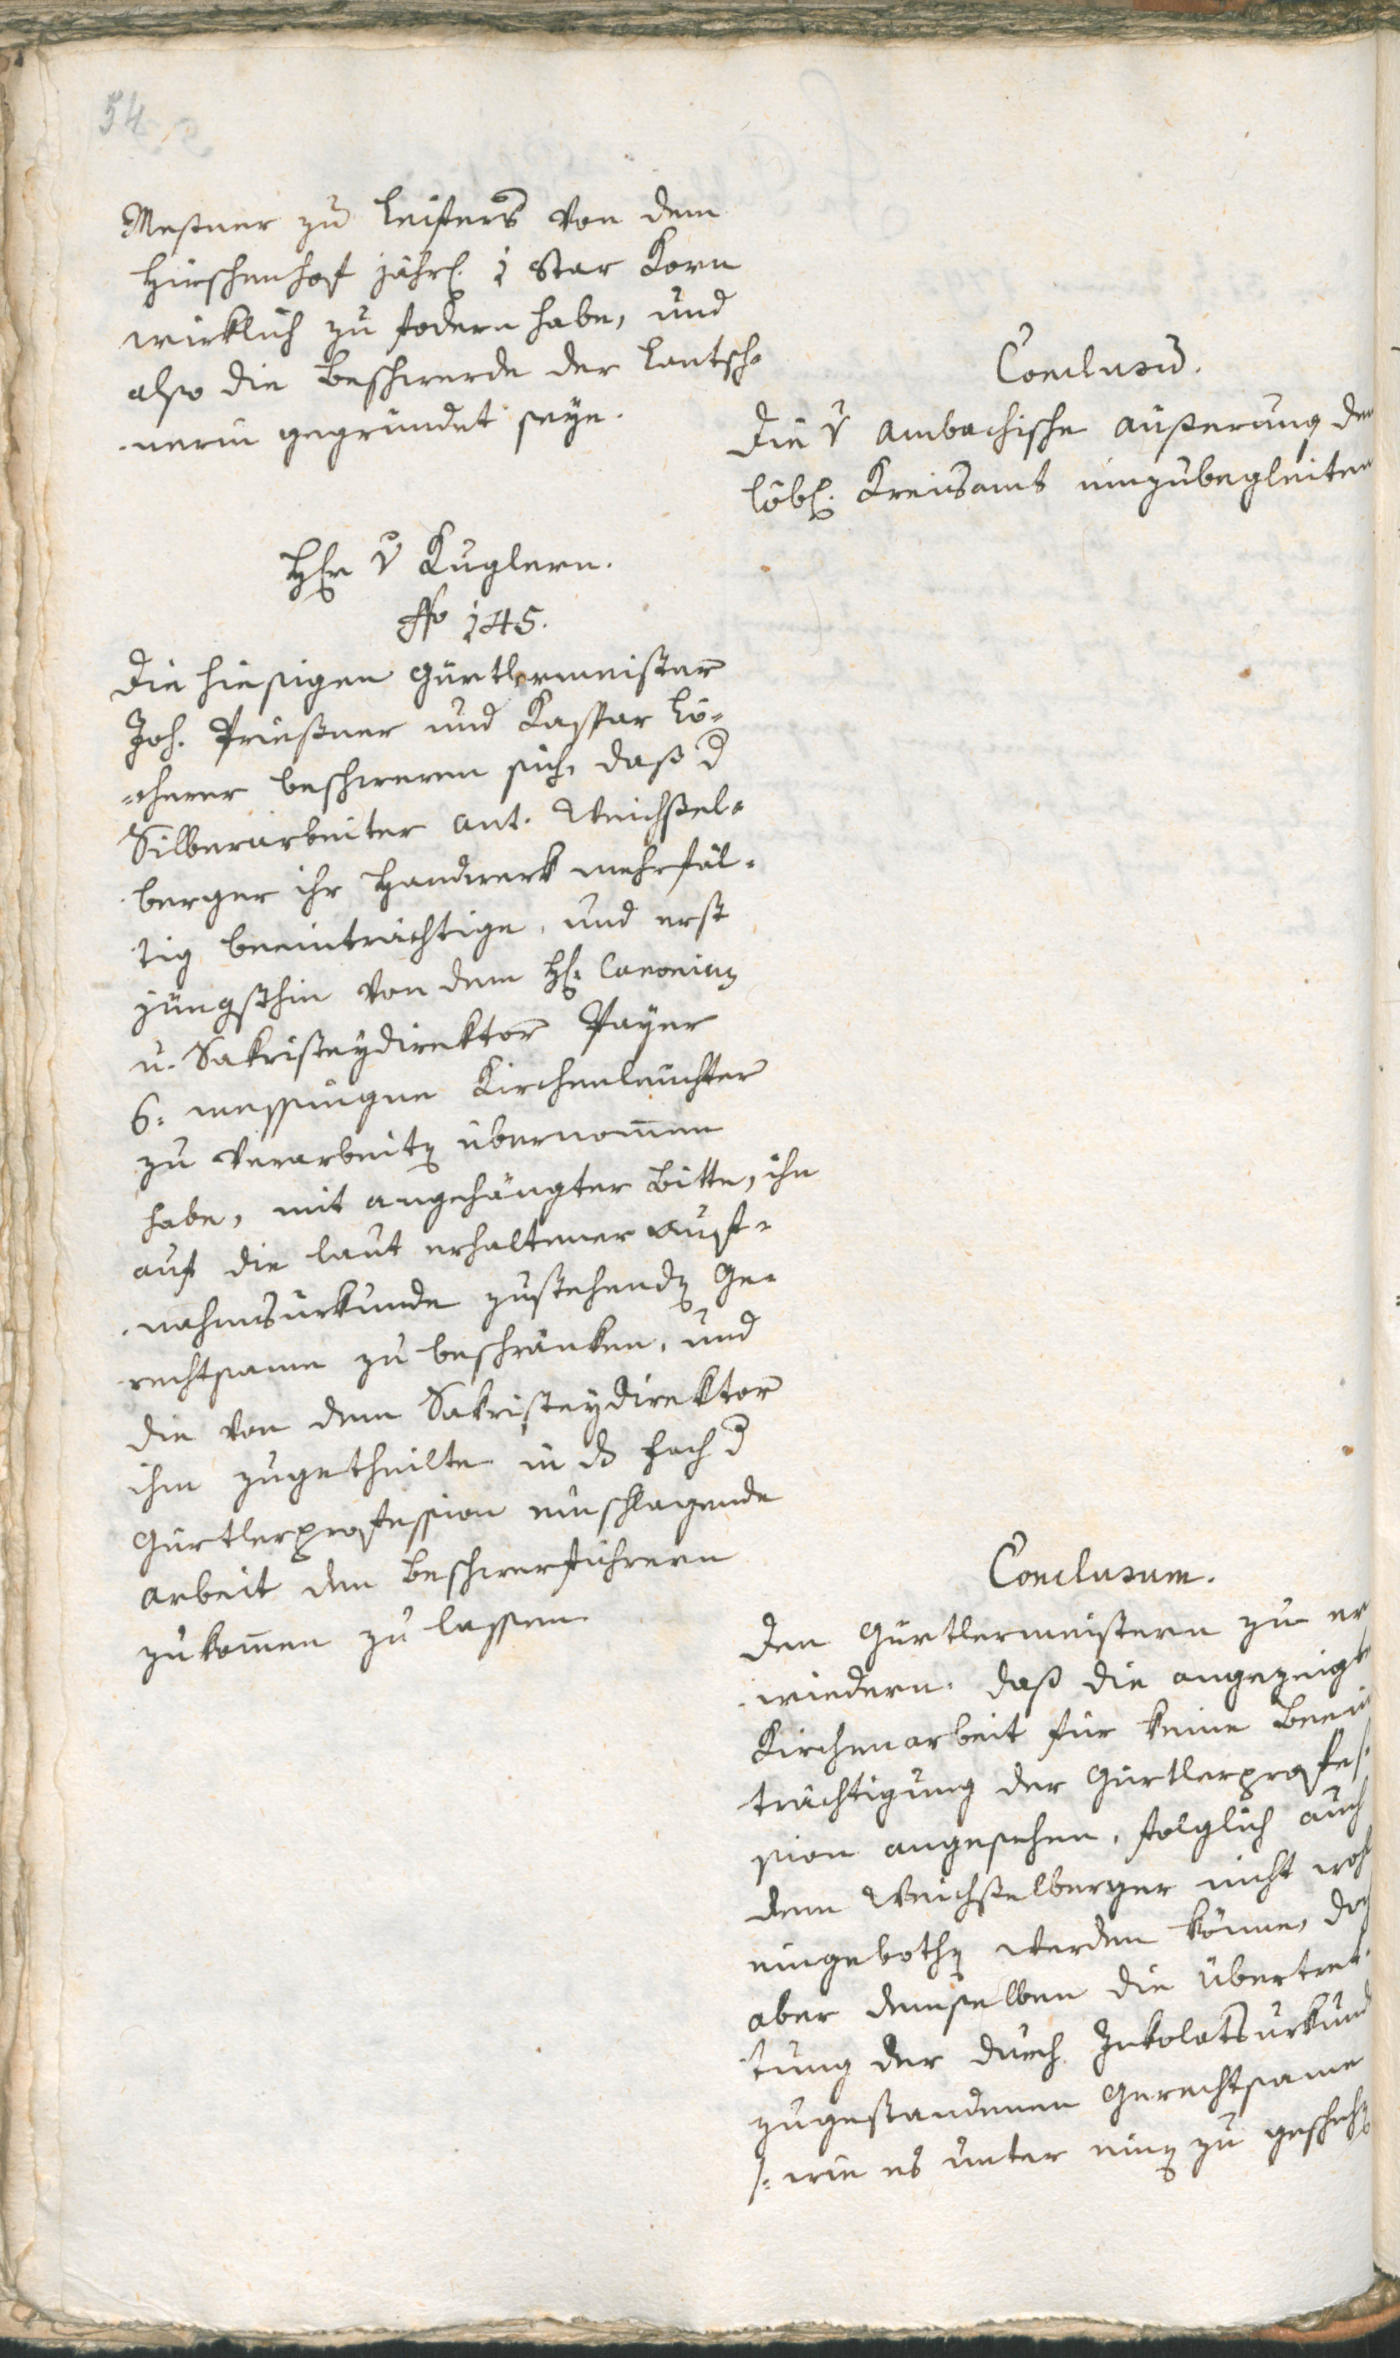 54
Meßner zu Leifers von dem
Hirschenhof jährl. 1 Star Korn
wirklich zu fodern habe, und
also die Beschwerde der Lantsch-
-nerin gegründet seye.
Conclusũ.
Die v Ambachische Äußerung dem
löbl. Kreisamt einzubegleiten
Hr v Kuglern.
No 145.
Die hiesigen Gürtlermeister
Joh. Prießner und Kasspar Lö-
-cherer beschweren sich, daß d
Silberarbeiter Ant. Weichßel-
berger ihr Handwerk mehrfäl-
tig beeinträchtige, und erst
jüngsthin von dem H. Canonicus
u. Sakristeydirektor Payer
6: messingne Kirchenleuchter
zu verarbeiten übernom̃en
habe, mit angehängter Bitte, ihn
auf die laut erhaltener Auf-
-nahmsurkunde zustehenden Ge-
rechtsame zu beschränken, und
die von dem Sakristeydirektor
ihm zugetheilte in ds Fach d
Gürtlerprofession einschlagende
Arbeit den Beschwerführern
zukom̃en zu lassen.
Conclusum.
Den Gürtlermeistern zu er
-wiedern, daß die angezeigte
Kirchenarbeit für keine Beein
trächtigung der Gürtlerprofes-
sion angesehen, folglich auch
dem Weichßelberger nicht wohl
eingebothen werden könne, daß
aber demselben die Übertret-
tung der durch Inkolatsurkund
zugestandenen Gerechtsame
/: wie es unter einen zu geschehen